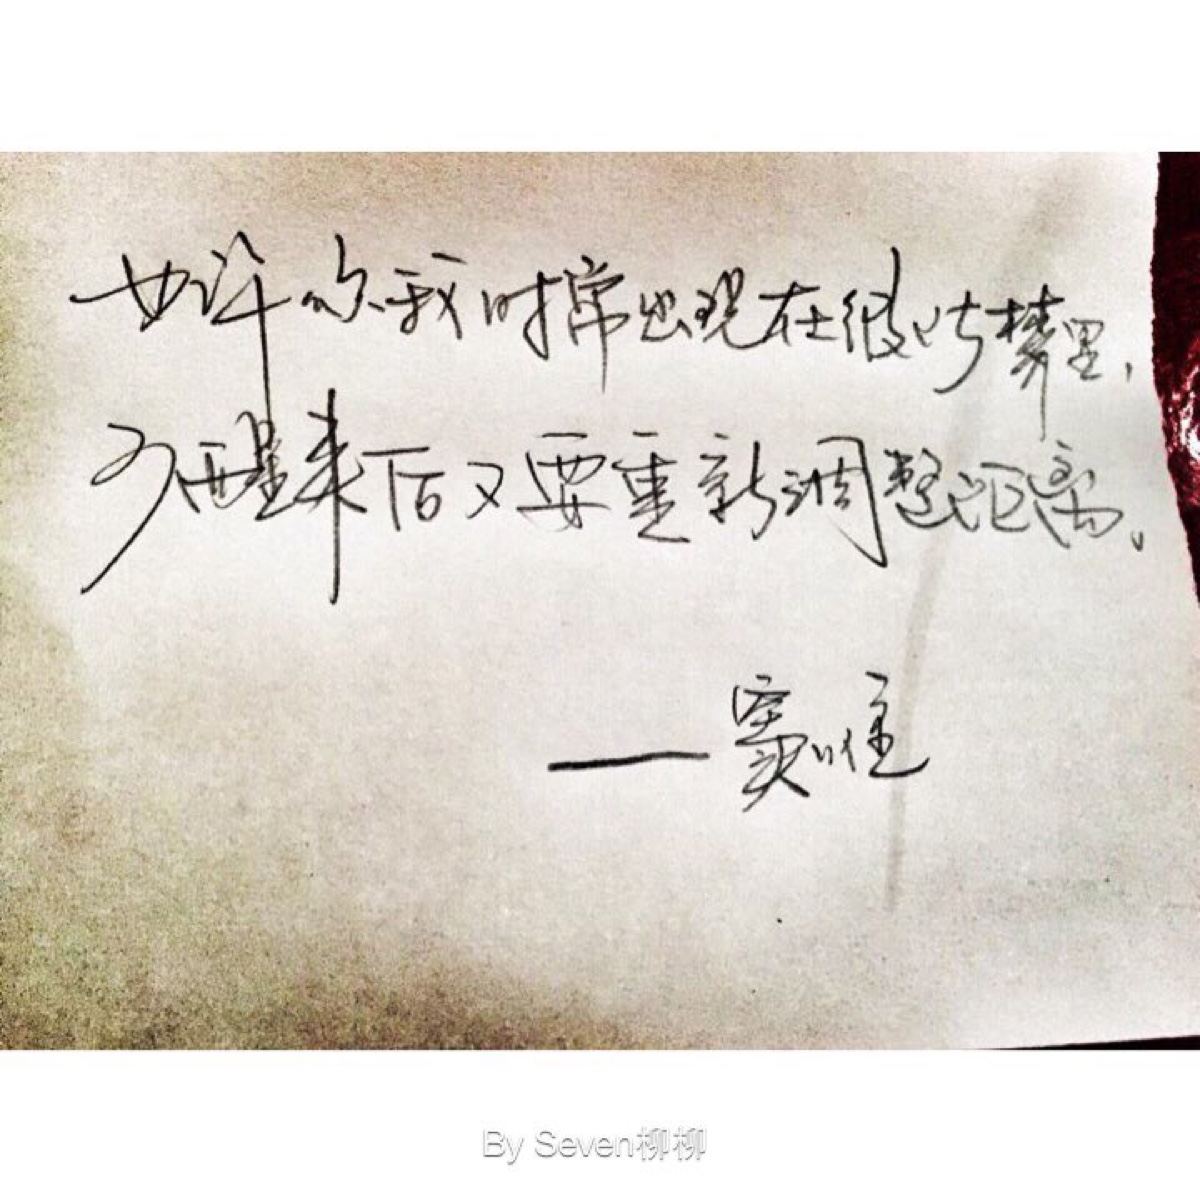 也许你我时常出现在彼此梦里，
可醒来后又要重新调整距离。
——窦唯
By Seven柳柳